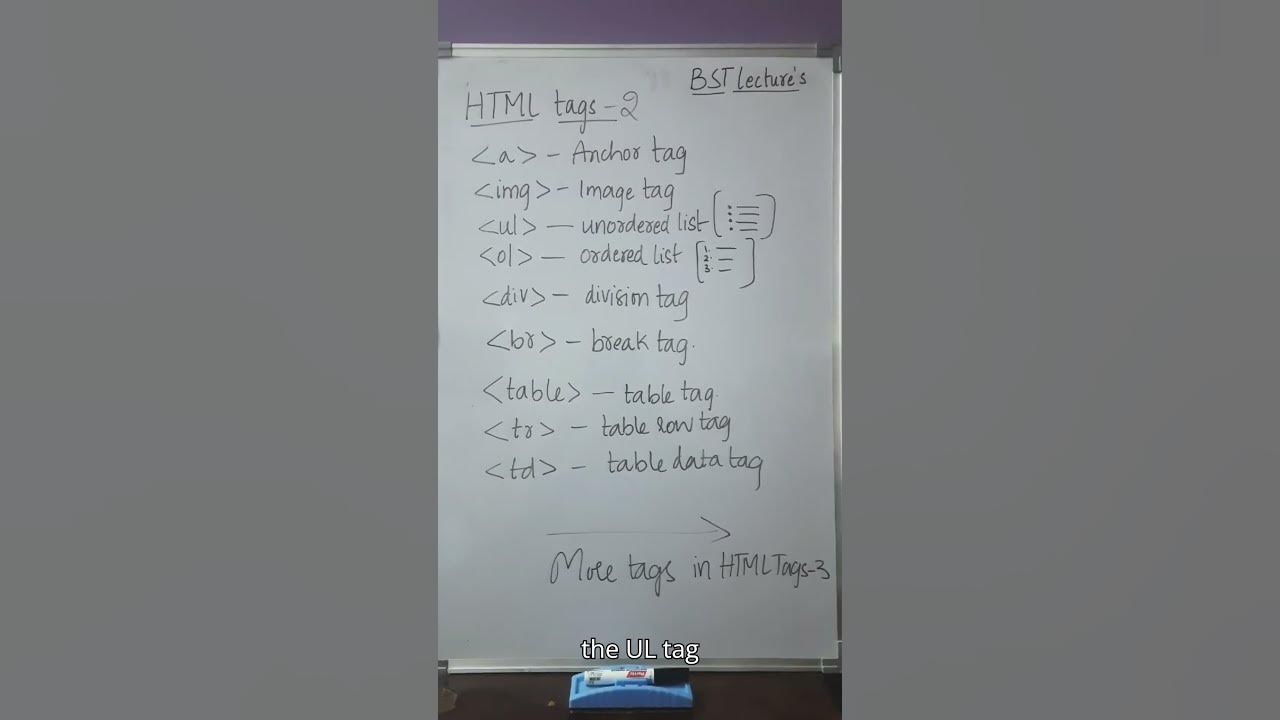 BST lecture's
HTML tags-2
<a> - Anchor tag
<img> - Image tag
<ul> - unordered list
<ol> - ordered list
1.
2.
3.
<div> - division tag
<br> - break tag.
<table> - table tag.
<tr> - table row tag
<td> - table data tag
More tags in HTML Tags-3
the UL tag